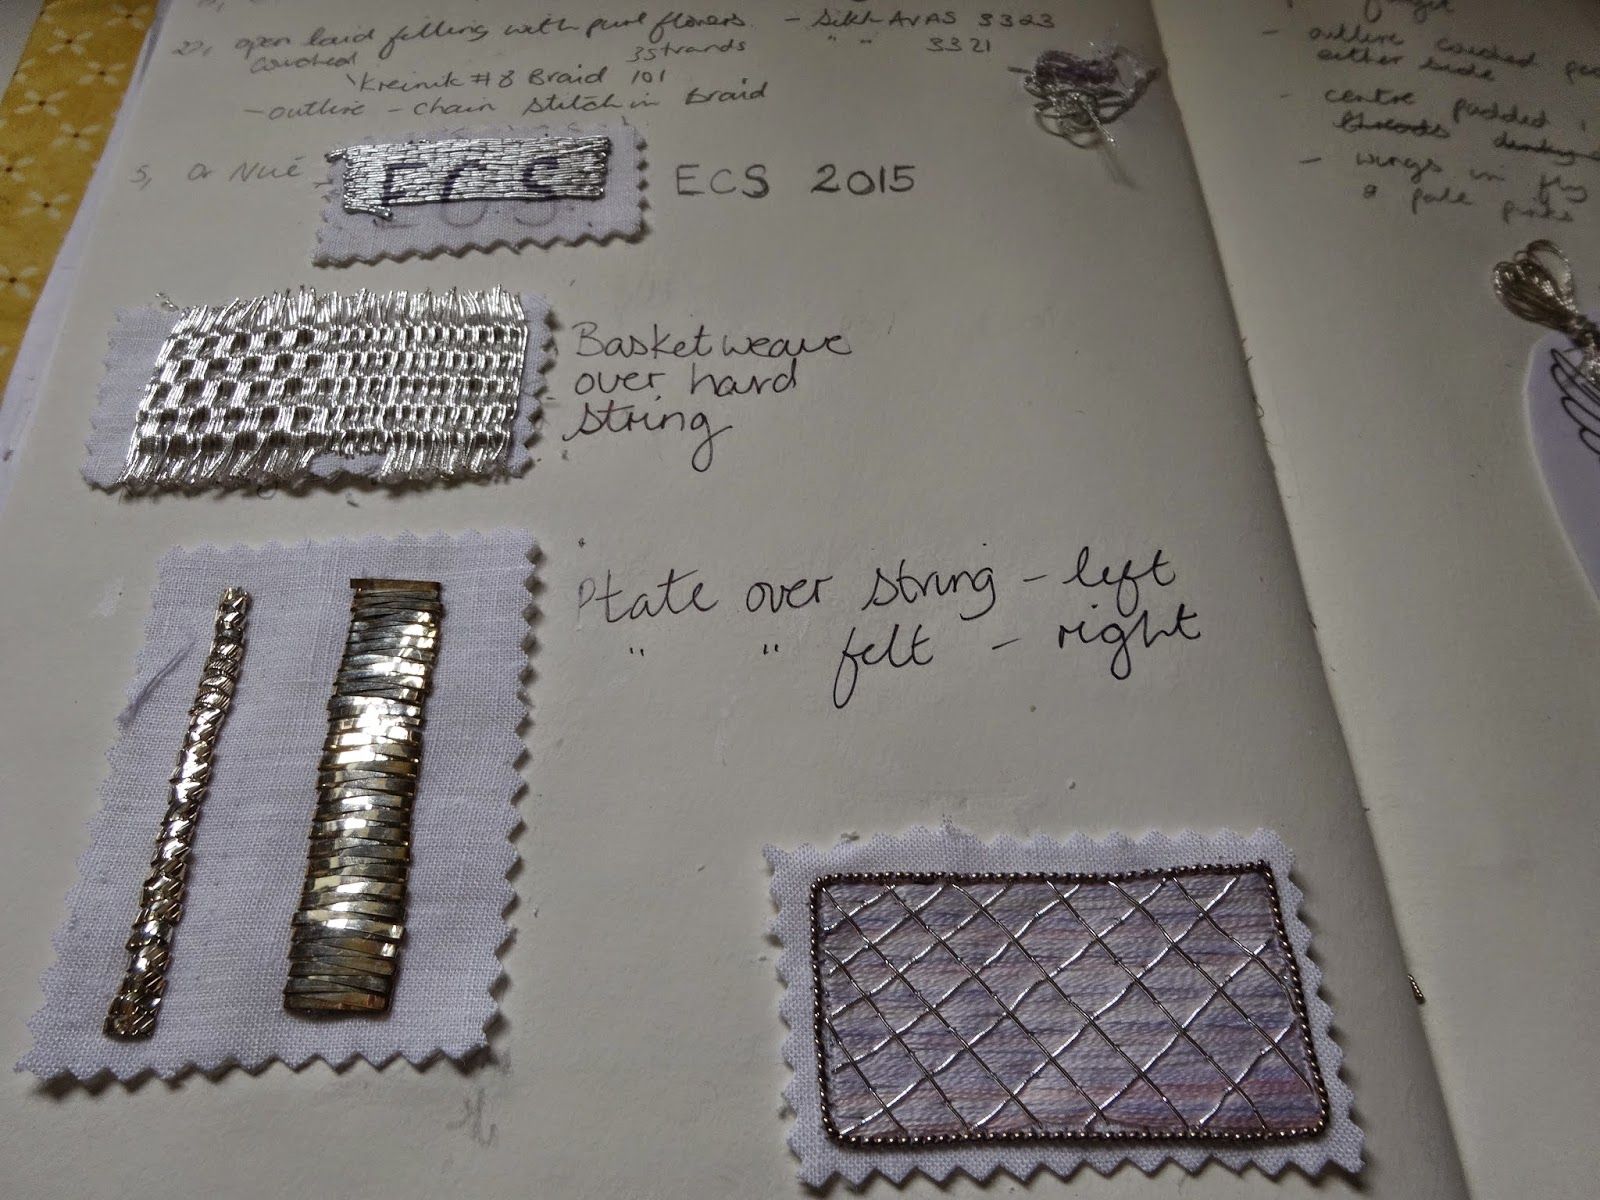 open laid filling with purl flowers. - Silk AVAS 3323
couched 3 strands " " 3321
Kreinik #8 Braid 101
- outline - chain stitch in Braid
5, Or Nué -
ECS
ECS 2015
Basketweave
over hard
string
Plate over string - left
" " felt - right
- outline couched
either side
- centre padded
threads
- wings in fly
a pale